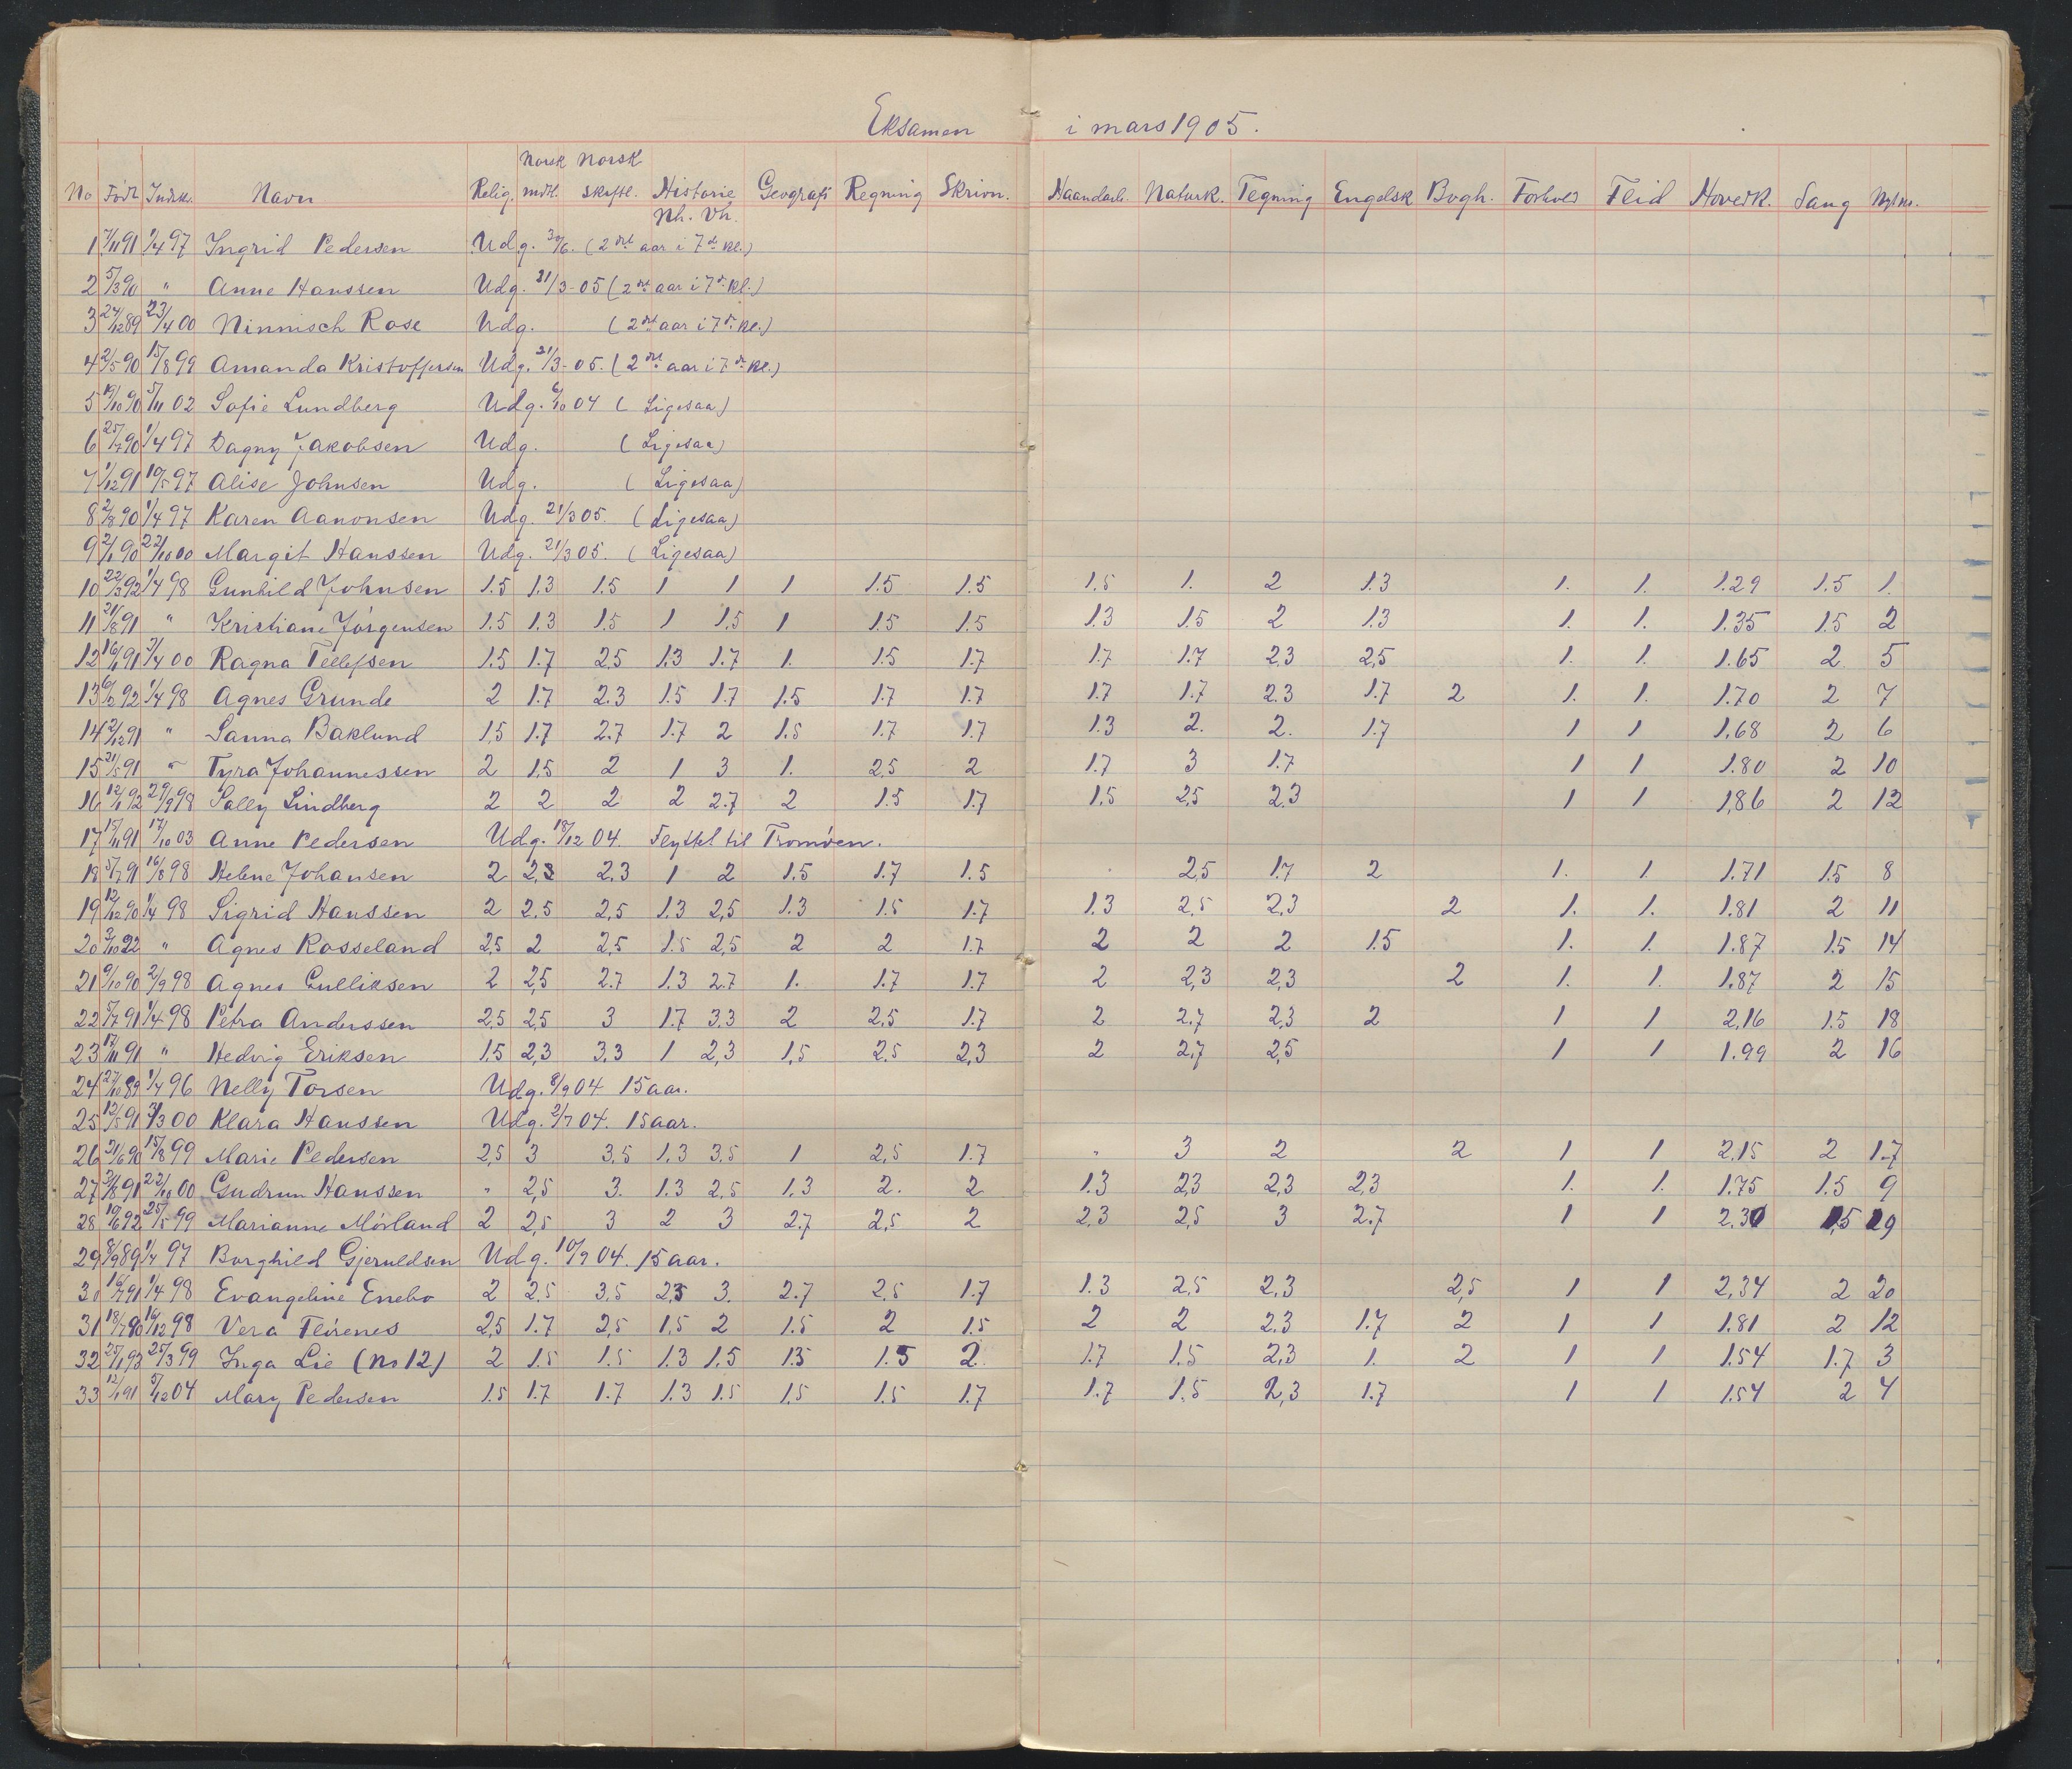 Eksamen i mars 1905.
Norsk Norsk
No Født Indsk. Navn Relig. mdtl. skriftl. Historie Geografi Regning Skrivn. Haandarb. Naturk. Tegning Engelsk Bogh. Forhold Flid Hovedk. Sang
Nh. Vh.
1 7/11 91 1/4 97 Ingrid Pedersen Udg. 30/6. (2det aar i 7de kl.)
2 5/3 90 " Anne Hanssen Udg. 21/3-05 (2det aar i 7de kl.)
3 24/12 89 23/4 00 Ninnisch Rose Udg. (2det aar i 7de kl.)
4 2/5 90 15/8 99 Amanda Kristoffersen Udg. 21/3-05. (2det aar i 7de kl.)
5 19/10 90 5/11 02 Sofie Lundberg Udg. 6/10 04 (Ligesaa)
6 25/7 90 1/4 97 Dagny Jakobsen Udg. (Ligesaa)
7 1/12 91 10/5 97 Alise Johnsen Udg. (Ligesaa)
8 2/8 90 1/4 97 Karen Aanonsen Udg. 21/3 05. (Ligesaa)
9 2/1 90 22/10 00 Margit Hanssen Udg. 21/3 05. (Ligesaa)
10 22/3 92 1/4 98 Gunhild Johnsen 1.5 1.3 1.5 1 1 1 1.5 1.5 1.5 1. 2 1.3 1. 1. 1.29 1.5 1.
11 21/8 91 " Kristiane Jörgensen 1.5 1.3 1.5 1 1.5 1 1.5 1.5 1.3 1.5 2 1.3 1. 1. 1.35 1.5 2
12 16/1 91 3/4 00 Ragna Tellefsen 1.5 1.7 2.5 1.3 1.7 1. 1.5 1.7 1.7 1.7 2.3 2.5 1. 1. 1.65 2 5
13 6/2 92 1/4 98 Agnes Grunde 2 1.7 2.3 1.5 1.7 1.5 1.7 1.7 1.7 1.7 2.3 1.7 2 1. 1. 1.70 2 7
14 2/12 91 " Sanna Baklund 1,5 1.7 2.7 1.7 2 1.5 1.7 1.7 1.3 2. 2. 1.7 1 1 1,68 2 6
15 21/5 91 " Tyra Johannessen 2 1,5 2 1 3 1. 2,5 2 1.7 3 1.7 1 1 1.80 2 10
16 12/1 92 29/9 98 Sally Lindberg 2 2 2 2 2.7 2 1.5 1.7 1.5 2,5 2.3 1 1 1,86 2 12
17 15/11 91 17/10 03 Anne Pedersen Udg. 18/12 04. Flyttet til Tromöen.
18 5/7 91 16/8 98 Helene Johansen 2 2,3 2.3 1 2 1.5 1.7 1.5 2,5 1.7 2 1. 1 1.71 1.5 8
19 12/12 90 1/4 98 Sigrid Hanssen 2 2.5 2,5 1.3 2,5 1.3 1.5 1.7 1.3 2,5 2.3 2 1. 1. 1.81 2 11
20 3/10 92 " Agnes Rosseland 2,5 2 2,5 1.5 2,5 2 2 1.7 2 2 2 1.5 1. 1. 1.87 1.5 14
21 9/10 90 2/9 98 Agnes Gulliksen 2 2,5 2.7 1.3 2.7 1. 1.7 1.7 2 2,3 2,3 2 1. 1. 1.87 2 15
22 5/7 91 1/4 98 Petra Anderssen 2,5 2,5 3 1.7 3.3 2 2,5 1.7 2 2.7 2,3 2 1 1 2,16 1.5 18
23 17/11 91 " Hedvig Eriksen 1.5 2,3 3.3 1 2,3 1,5 2.5 2,3 2 2,7 2,5 1 1 1.99 2 16
24 27/10 89 1/4 96 Nelly Torsen Udg. 8/9 04 15 aar.
25 12/5 91 3/3 00 Klara Hanssen Udg. 2/7 04. 15 aar.
26 21/6 90 15/8 99 Marie Pedersen 2,5 3 3.5 1.3 3.5 1 2,5 1.7 " 3 2 2 1 1 2,15 2 1.7
27 2/8 91 22/10 00 Gudrun Hanssen " 2,5 3. 1.3 2,5 1,3 2. 2 1.3 2,3 2,3 2,3 1. 1. 1.75 1.5 9
28 19/6 92 25/5 99 Marianne Mörland 2 2,5 3 2 3 2.7 2,5 2 2,3 2,5 3 2.7 1 1 2.30 1,5 19
29 8/9 89 1/4 97 Borghild Gjeruldsen Udg. 10/9 04. 15 aar.
30 16/7 91 1/4 98 Evangeline Enebo 2 2,5 3.5 2,5 3. 2.7 2,5 1.7 1.3 2.5 2,3 2,5 1 1 2,34 2 20
31 18/7 90 16/12 98 Vera Flörenes 2,5 1.7 2,5 1,5 2 1.5 2 1.5 2 2 2.3 1.7 2 1 1 1.81 2 12
32 25/1 93 25/3 99 Inga Lie (No 12) 2 1.5 1.5 1.3 1.5 1.5 1.5 2 1.7 1.5 2,3 1. 2 1 1 1.54 1.7 3
33 12/1 91 5/12 04 Mary Pedersen 1.5 1.7 1.7 1.3 1.5 1,5 1.5 1.7 1.7 1.5 2,3 1.7 1 1 1.54 2 4